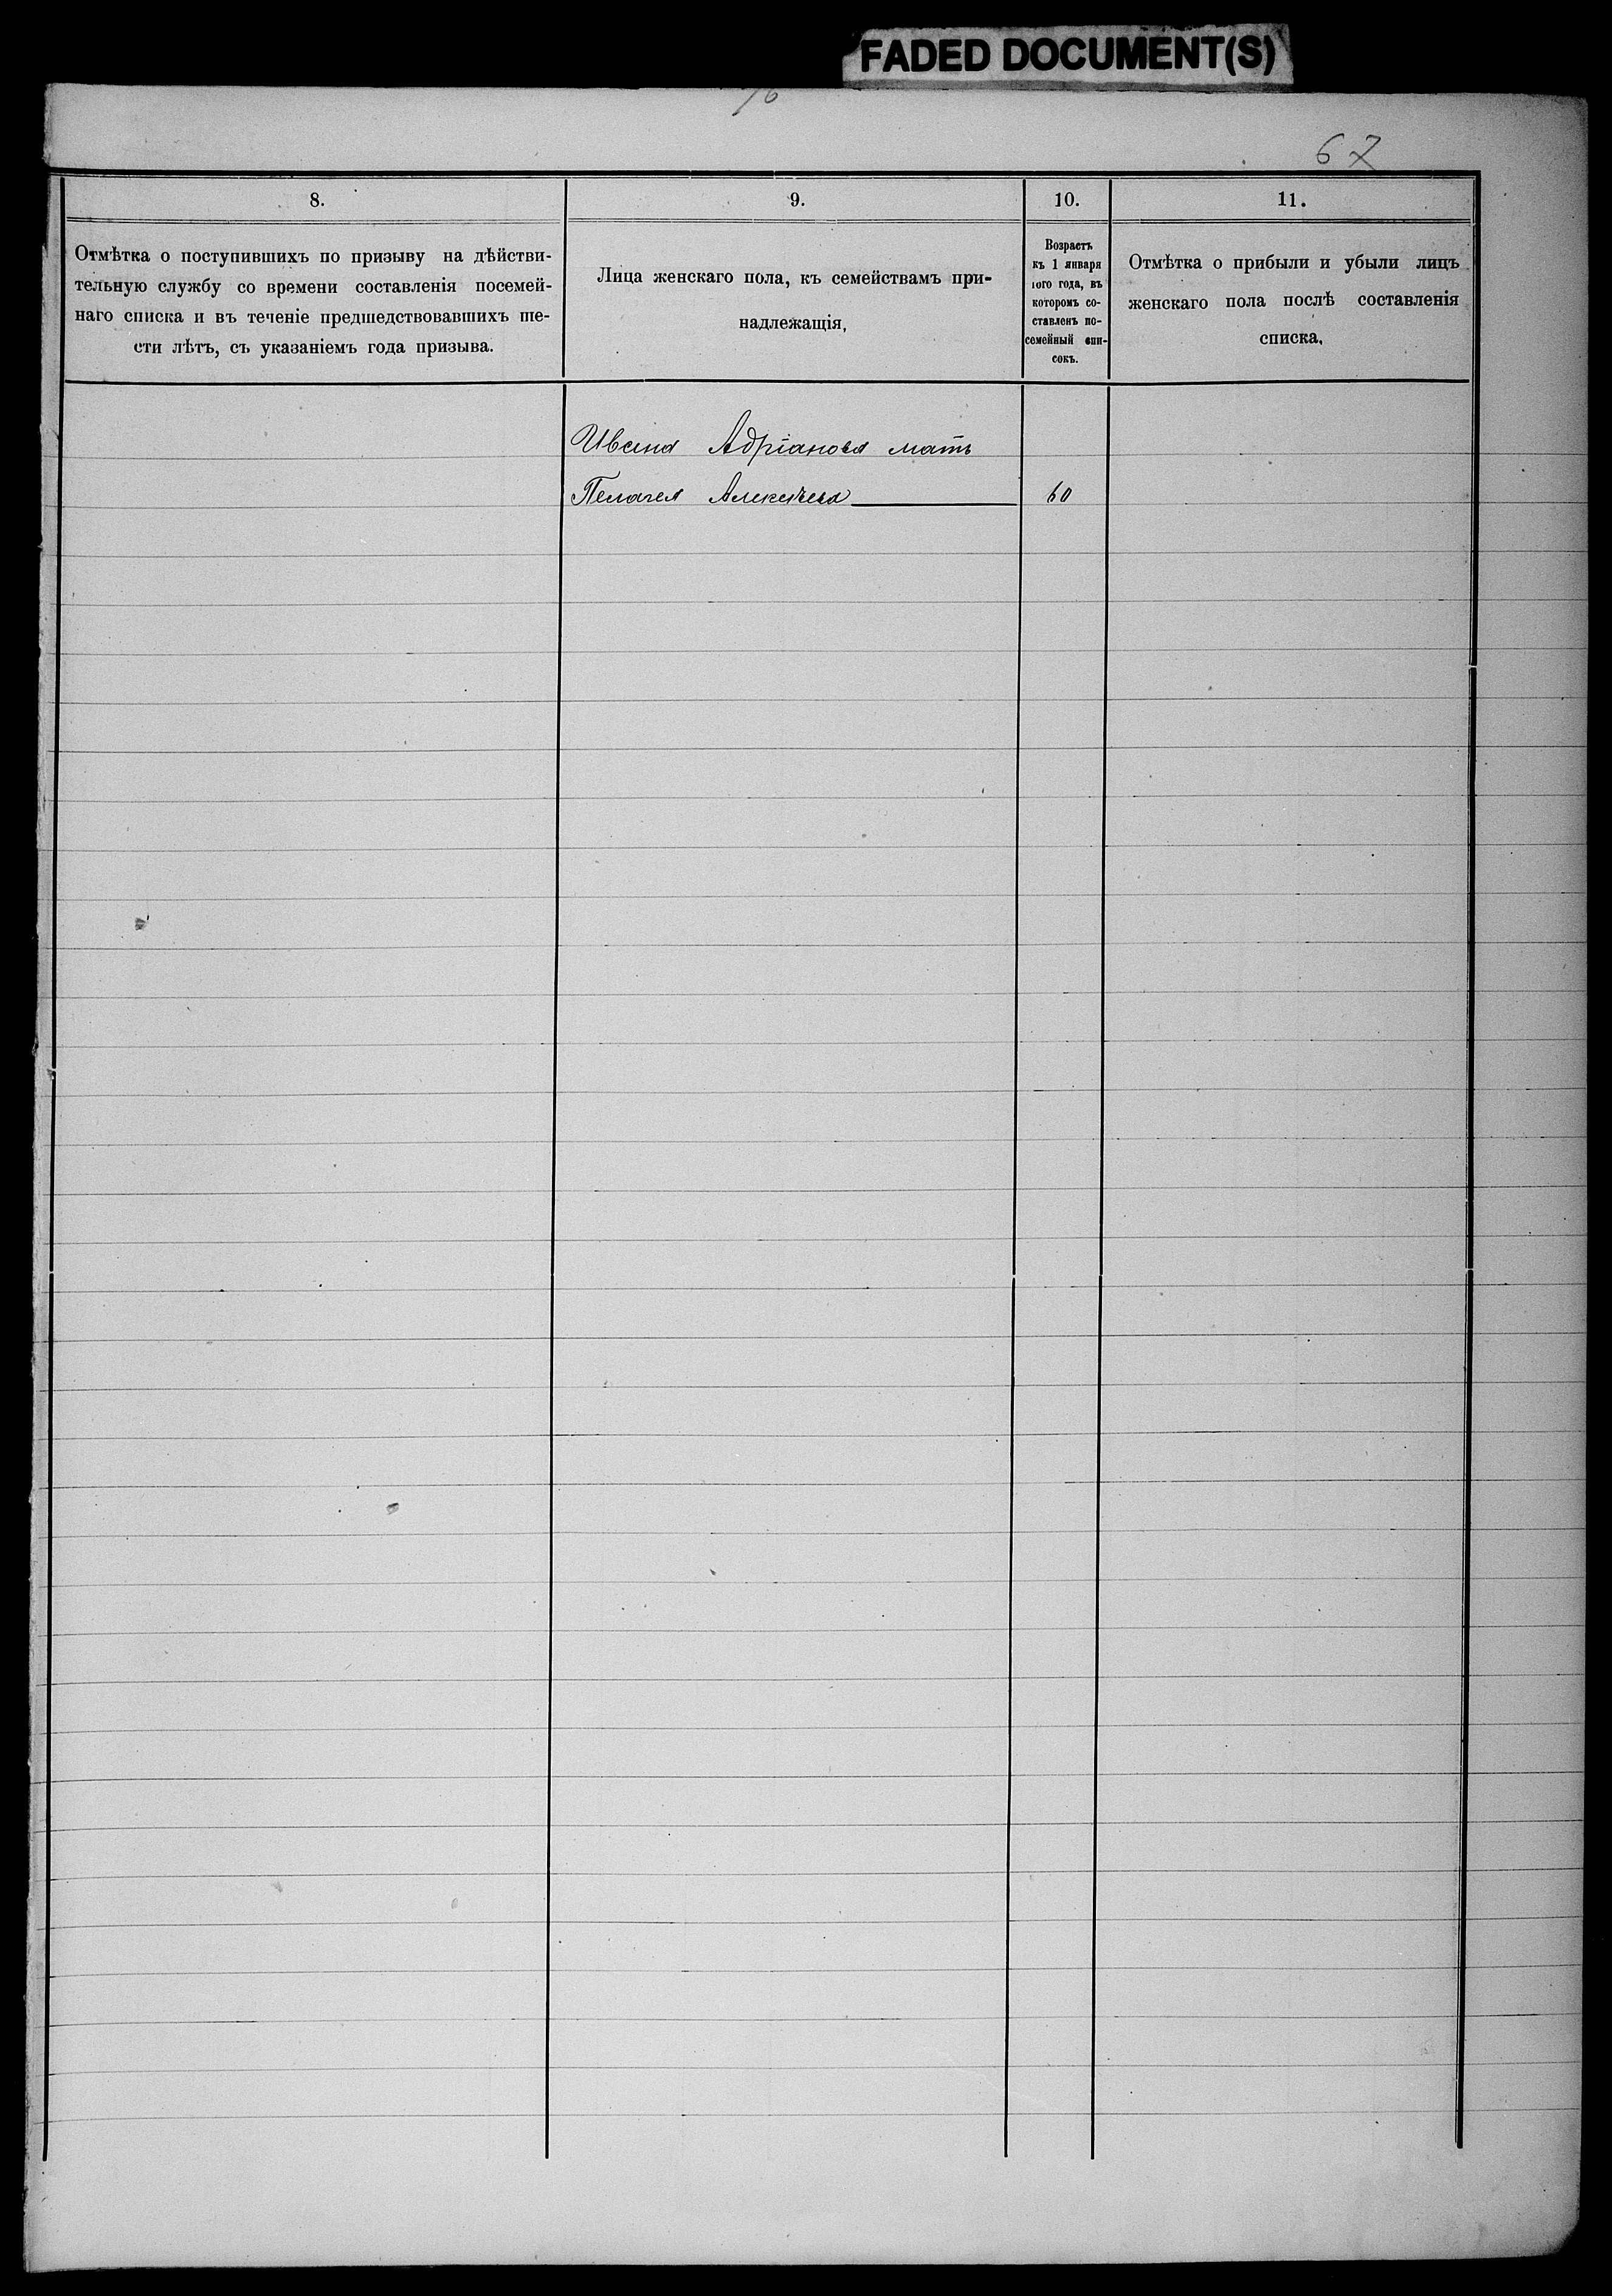 FADED DOCUMENT(S)
67
8.
Отмѣтка о поступившихъ по призыву на дѣйстви-
тельную службу со времени составленія посемей-
наго списка и въ теченіе предшедствовавшихъ ше-
сти лѣтъ, съ указаніемъ года призыва.
9.
Лица женскаго пола, къ семействамъ при-
надлежащія,
10.
Возрастъ
къ 1 января
того года, въ
которомъ со-
ставленъ по-
семейный спи-
сокъ.
11.
Отмѣтка о прибыли и убыли лицъ
женскаго пола послѣ составленія
списка.
Ивана Адріанова мать
Пелагея Алексѣева 60